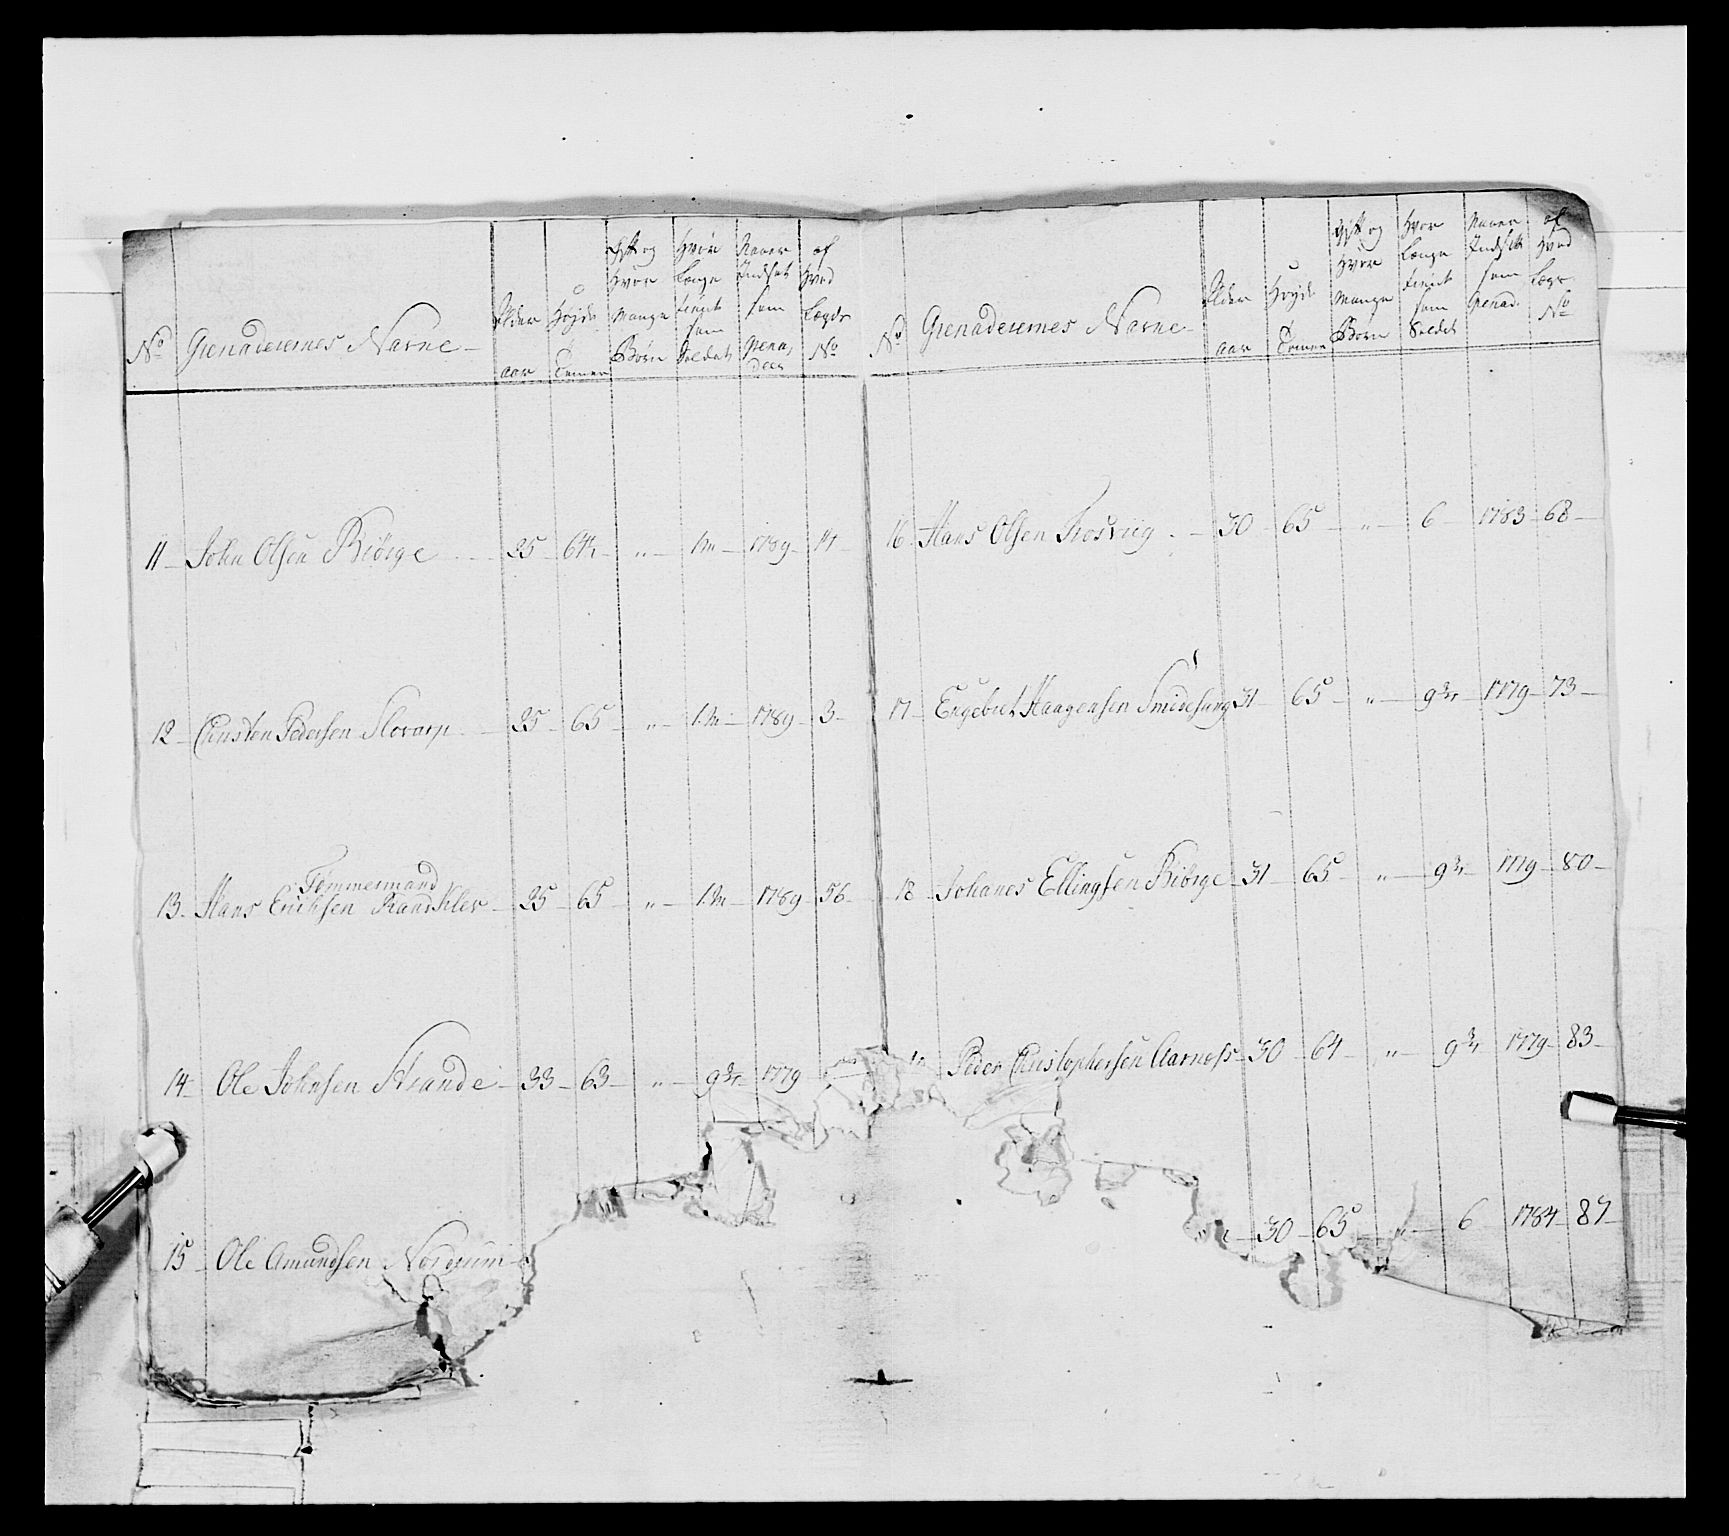 No Grenaderernes Navne Alder aar Høyde Tommer Gift og hvor Mange Børn Hvor Længe tient som Soldat Naaer Indsat som Grenadeer af hvad Lægds No
11 John Olsen Biørge 25 64½ " 1 M 1789 14
12 Christen Pedersen Slorarp 25 65 " 1 M 1789 3
Tømmermand
13 Hans Erichsen 25 65 " 1 M 1789 56
14 Ole Johnsen Strande 33 63 " 9 3/4 1779
15 Ole Amundsen Norderum
No Grenaderernes Navne Alder aar Høyde Tommer Gift og hvor Mange Børn Hvor Længe tient som Soldat Naaer Indsatt som Grenad. af hvad Lægs No
16 Hans Olsen Kosviig 30 65 " 6 1783 68
17 Engebret Haagensen 31 65 " 9 3/4 1779 73
18 Johanes Ellingsen Biørge 31 65 " 9 3/4 1779 80
Peder Christophersen Aarness 30 64 " 9 3/4 1779 83
30 65 " 6 1784 87